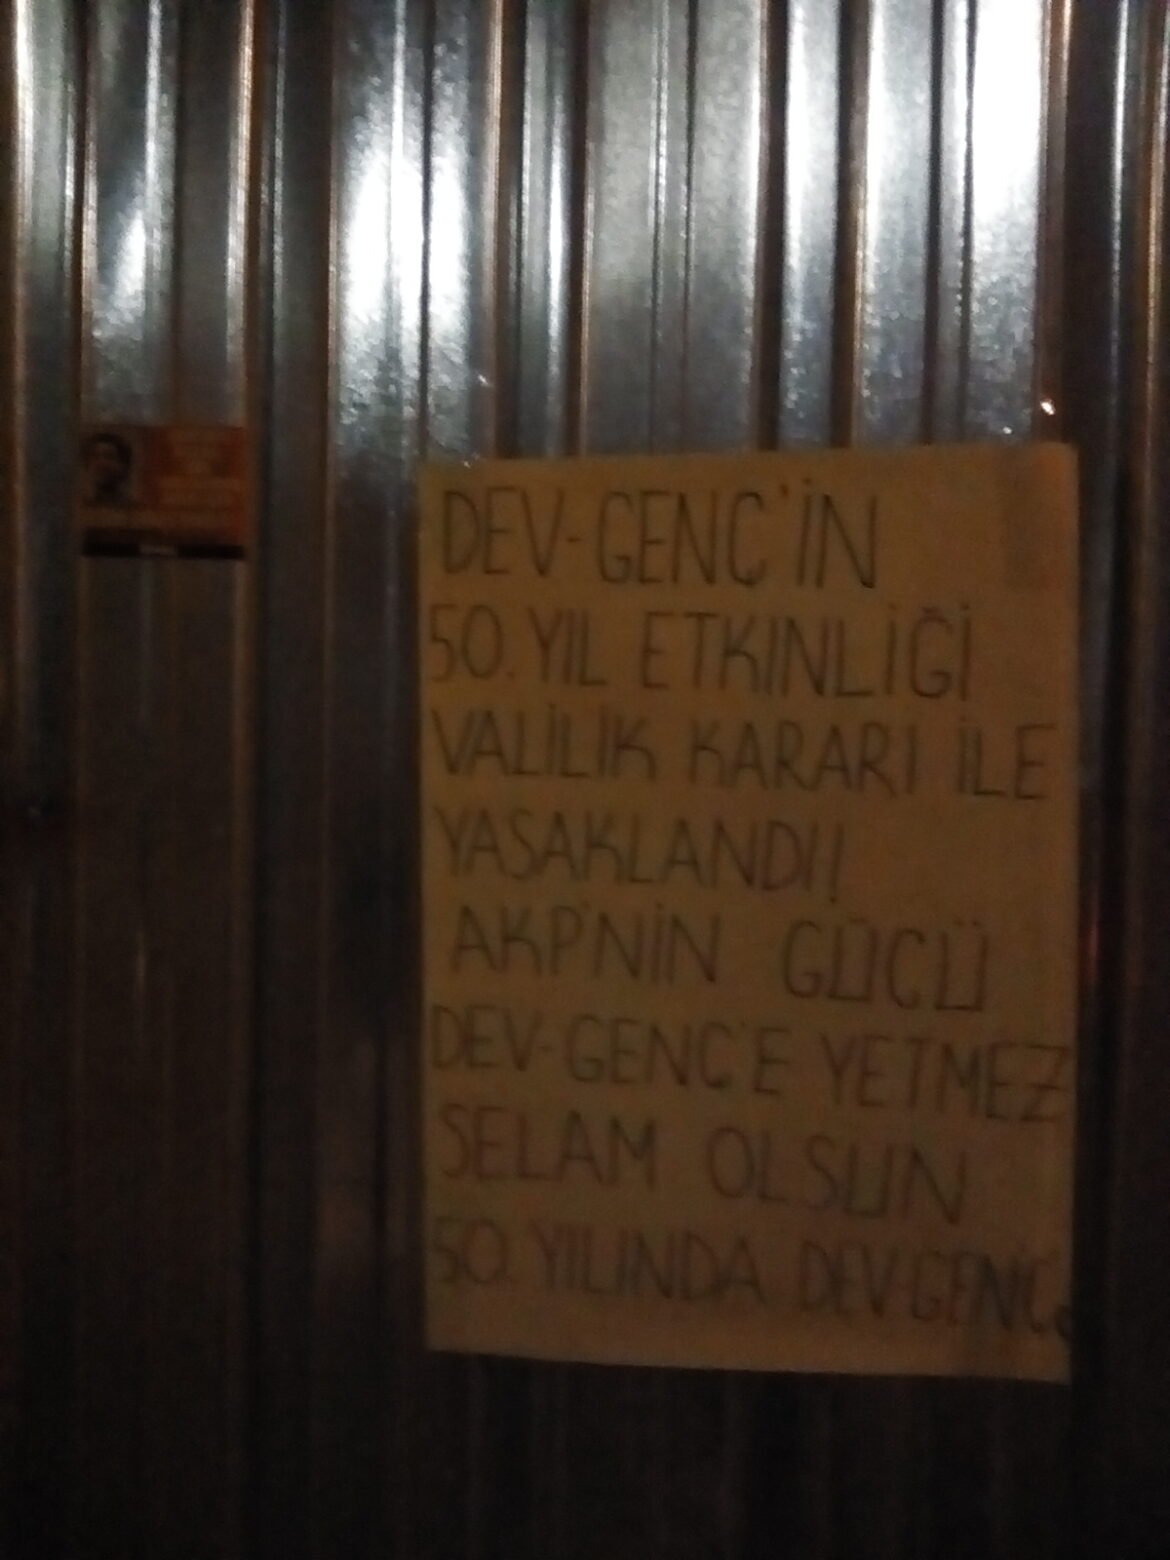 DEV-GENÇ'İN
50. YIL ETKINLİĞİ
VALİLİK KARARI İLE
YASAKLANDI!
AKP'NİN GÜCÜ
DEV-GENÇ'E YETMEZ
SELAM OLSUN
50. YILINDA DEV-GENÇ